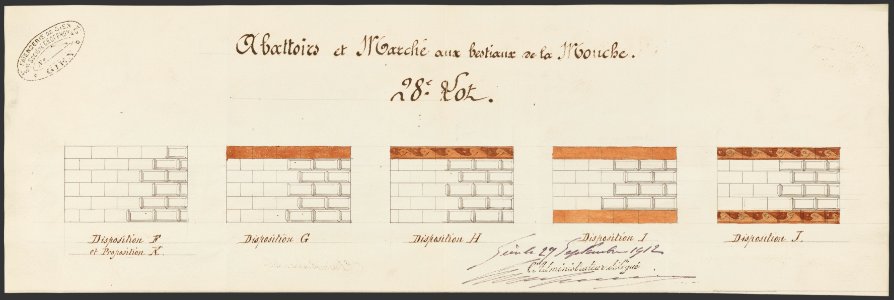 FAIENCERIE DE GIEN
GIEN
Abattoirs et Marché aux bestiaux de la Mouche.
28e Lot.
Disposition F
et Proposition K.
Disposition G
Disposition H
Disposition I
Disposition J.
Gien le 27 Septembre 1912
L'Administrateur délégué